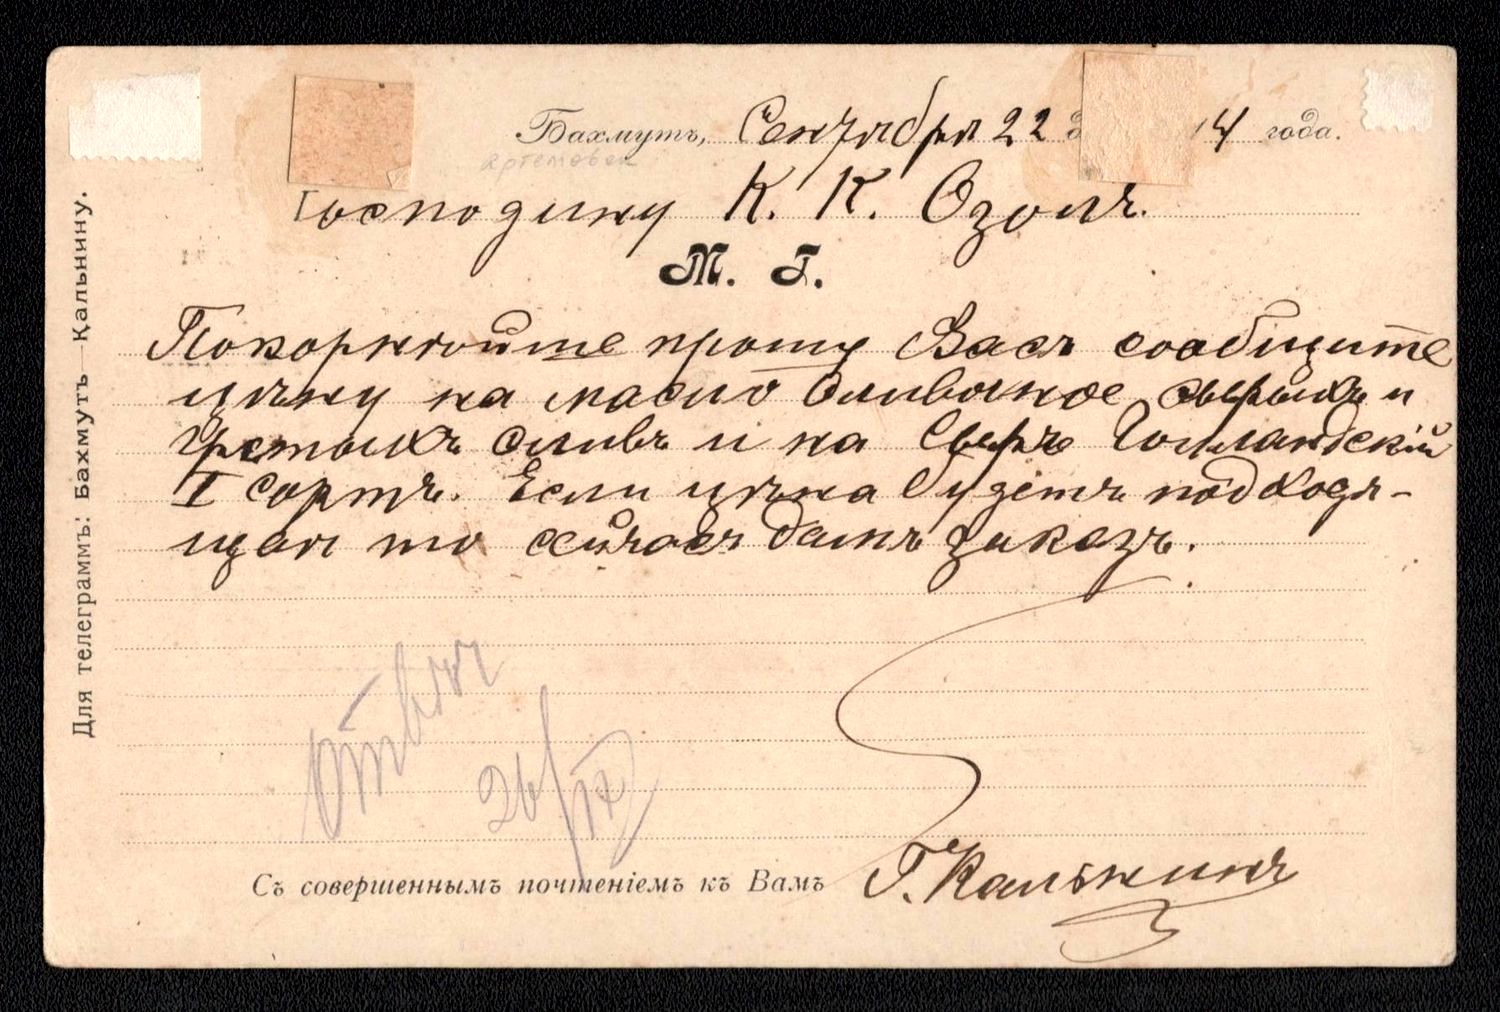 Бахмутъ, Сентября 22 4 года.
артемовск
Господину К. К. Озолъ.
М. Г.
Покорнѣйше прошу Васъ сообщите
цѣну на масло Сливочное, сырыхъ и
грѣтыхъ сливъ и на Сыръ Голландскій
I Сортъ. Если цѣна будетъ подходя-
щая то сейчасъ дамъ заказъ.
Отвѣч
26/IX
Съ совершеннымъ почтеніемъ къ Вамъ Г. Кальнинъ
Для телеграммъ: Бахмутъ Кальнину.